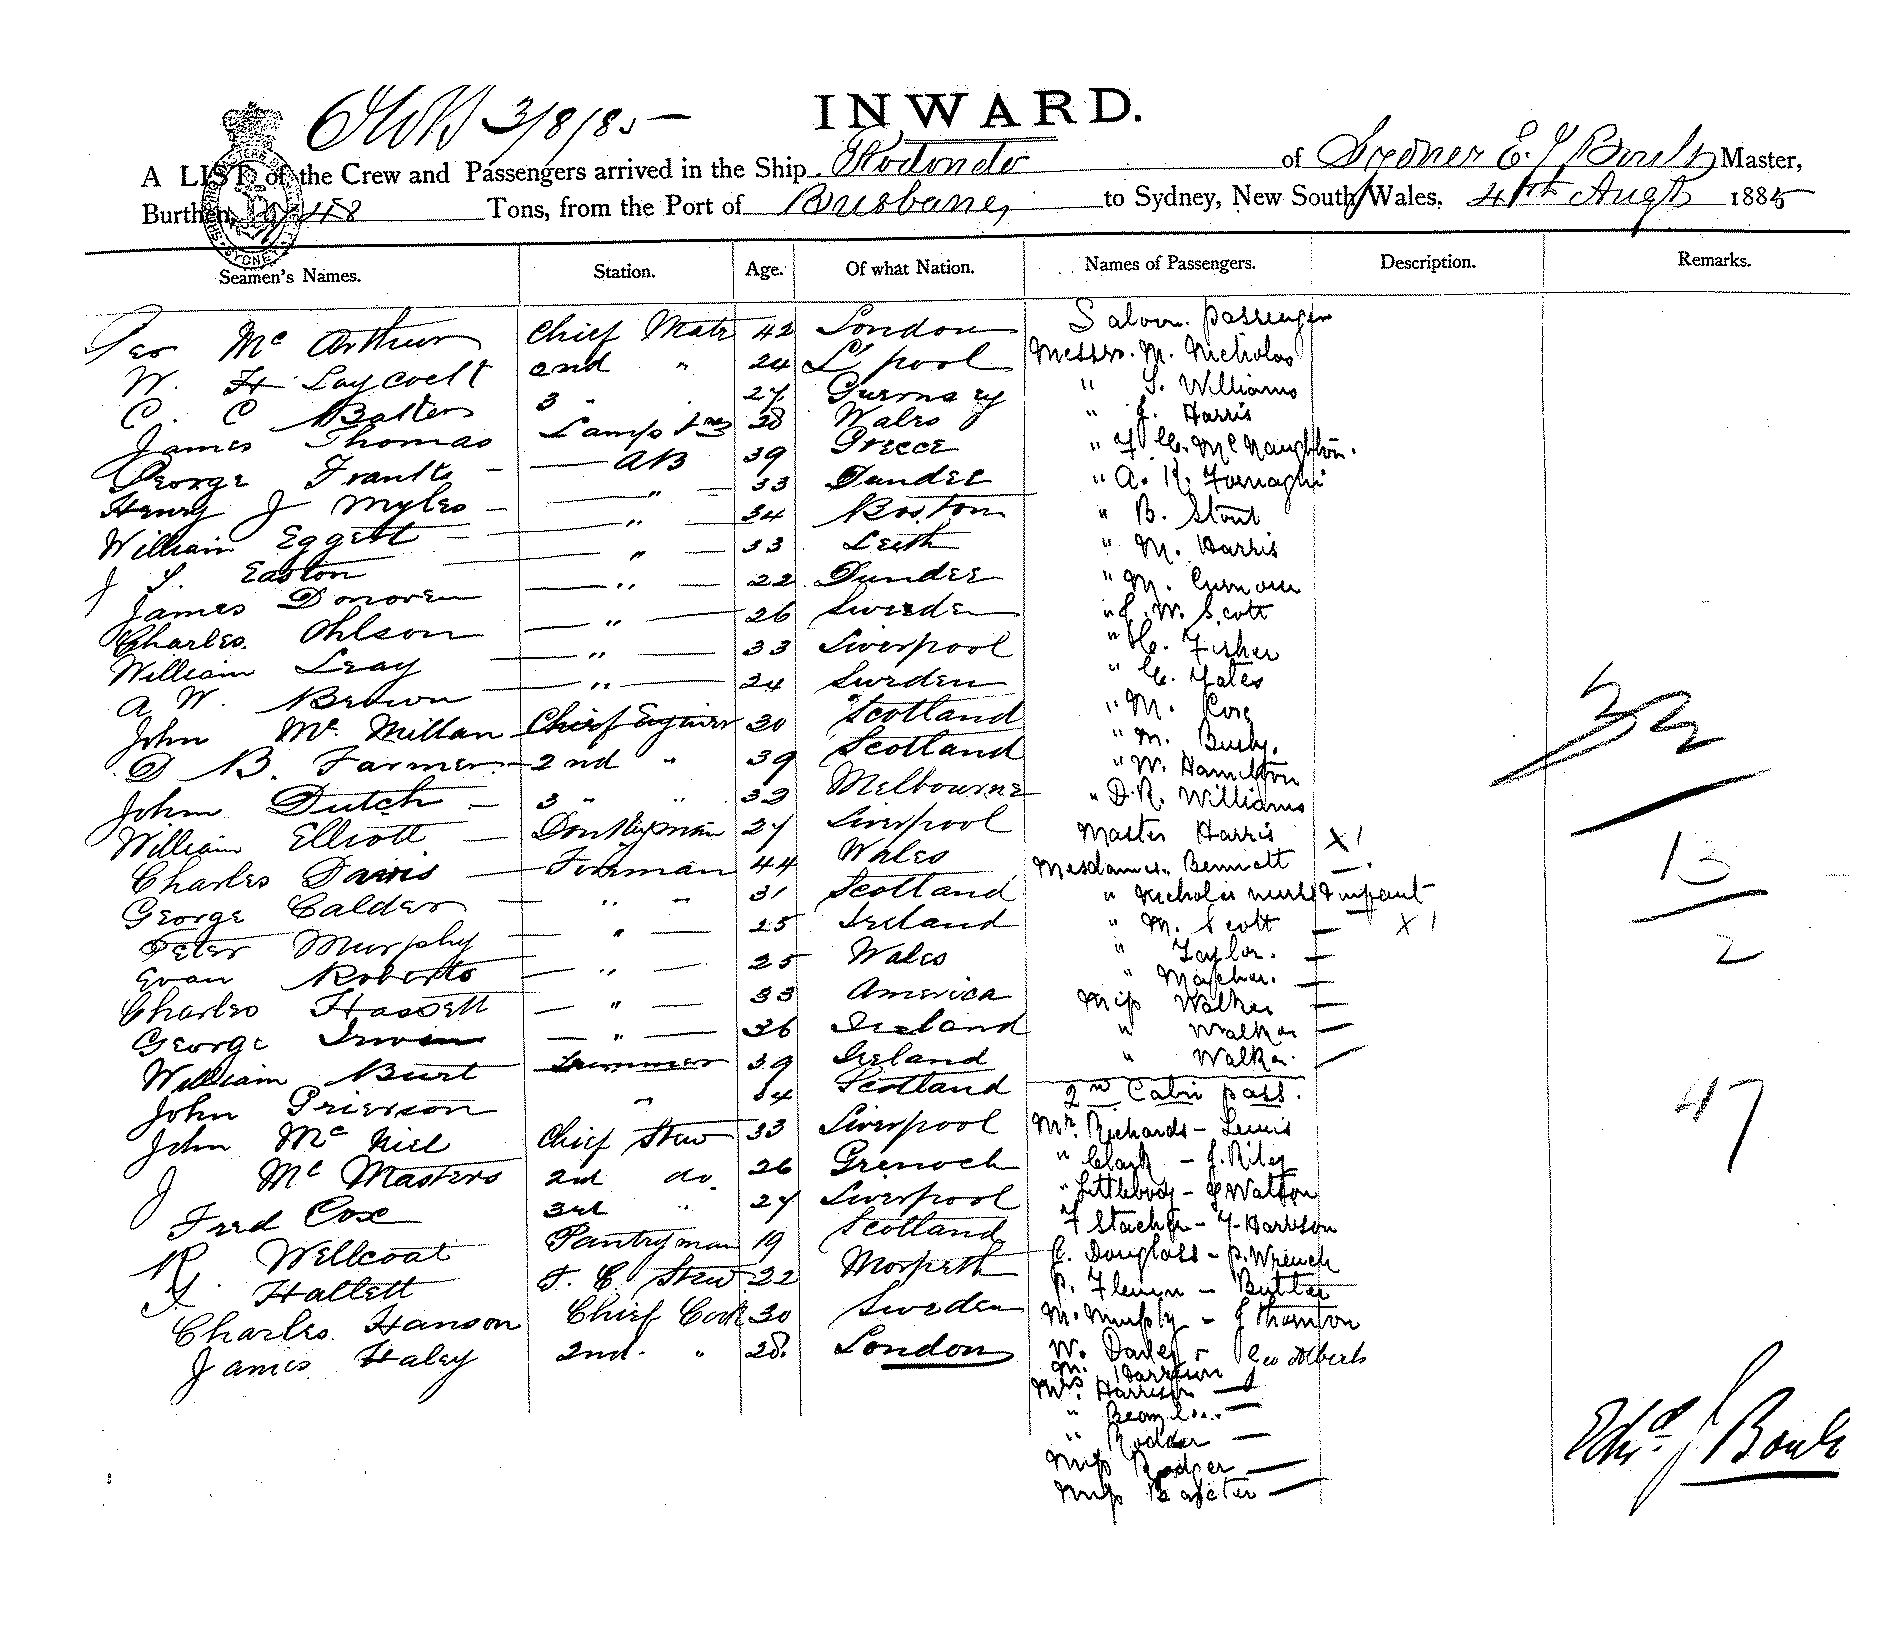 INWARD.
3/8/85
A LIST of the Crew and Passengers arrived in the Ship Rodondo of Sydney E. J. Boult Master,
Burthen, 748 Tons, from the Port of Brisbane, to Sydney, New South Wales, 4th Augt 1885
Seamen's Names. Station. Age. Of what Nation. Names of Passengers. Description. Remarks.
Geo Mc Arthur Chief Mate 42 London
W. H Laycoelt 2nd " 24 L'pool
C. C Batten 3 " 27 Gurnsey
James Thomas Lamp tmr 28 Wales
George Franks - AB 39 Greece
Henry J Myles - " - 33 Dundee
William Eggett - " - 34 Boston
J S. Easton - " - 33 Leith
James Donoven - " - 22 Dundee
Charles. Ohlson - " - 26 Sweden
William Leay - " - 33 Liverpool
A W. Brown - " - 24 Sweden
John Mc Millan Chief Enginer 30 Scotland
D B. Farmer - 2nd " 39 Scotland
John Dutch - 3 " " 33 Melbourne
William Elliott - Donkeyman 27 Liverpool
Charles Davis - Fireman 44 Wales
George Calder - " - 31 Scotland
Peter Murphy - " - 25 Ireland
Evan Roberts - " - 25 Wales
Charles Hassett - " - 33 America
George Irwin - " - 36 Ireland
William Burt Trimmer 39 Ireland
John Grierson " 34 Scotland
John Mc Niel Chief Stew 33 Liverpool
J Mc Masters 2nd do. 26 Grenock
Fred Cox 3rd " 27 Liverpool
R Wellcoat Pantryman 19 Scotland
Hallett F. C. Stew 22 Morpeth
Charles. Hanson Chief Cook 30 Sweden
James Haley 2nd. " 28. London
Saloon passengers
Messrs. M. Nicholas
" S. Williams
" J. Harris
" F. C. McNaughton.
" A. R. Fornaghi
" B. Stout
" M. Harris
" M. Curnow
" E. W. Scott
" H. Fisher
" C. Yates
" M. Core
" M. Busby.
" W. Hamilton
" D. R. Williams
Master Harris X 1
Mesdames. Bennett -
" Nicholas nurse & infant
" M. Scott - X 1
" Taylor. -
" Mapher. -
Miss Walker -
" Walker -
" Walker. -
2nd Cabin pass.
Mr. Richards - Lewis
" Clark - J. Riley
" Littlebody - J Watson
F Stack - F. Harrison
E. Douglass - P. Wrench
P. Flemen - Butler
M. Murphy - J Thornton
W. Daley - Geo Alberts
M. Harrison
Mrs. Harrison -
" -
" Rodger -
Miss Rodger -
Miss Baxter -
32
13
2
47
Edwd. J Boult